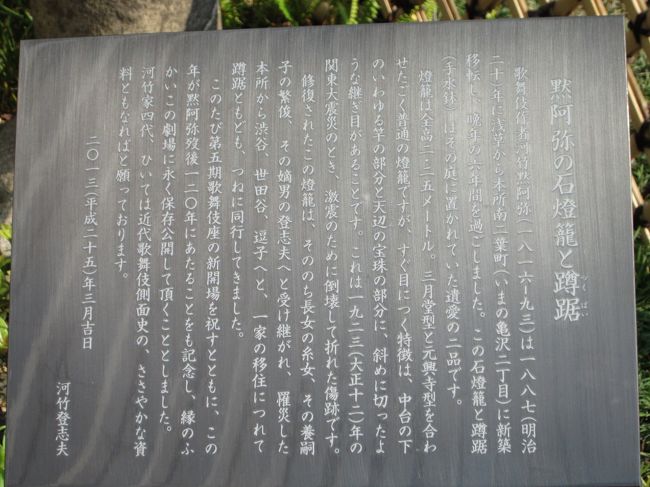 黙阿弥の石燈籠と蹲踞
つくばい
歌舞伎作者河竹黙阿弥(一八一六-九三)は一八八七(明治
二十)年に浅草から本所南二葉町(いまの亀沢二丁目)に新築
移転し、晩年の六年間を過ごしました。この石燈籠と蹲踞
(手水鉢)はその庭に置かれていた遺愛の二品です。
燈籠は全高二・二五メートル。三月堂型と元興寺型を合わ
せたごく普通の燈籠ですが、すぐ目につく特徴は、中台の下
のいわゆる竿の部分と天辺の宝珠の部分に、斜めに切ったよ
うな継ぎ目があることです。これは一九二三(大正十二)年の
関東大震災のとき、激震のために倒壊して折れた傷跡です。
修復されたこの燈籠は、そののち長女の糸女、その養嗣
子の繁俊、その嫡男の登志夫へと受け継がれ、罹災した
本所から渋谷、世田谷、逗子へと、一家の移住につれて
蹲踞ともども、つねに同行してきました。
このたび第五期歌舞伎座の新開場を祝すとともに、この
年が黙阿弥歿後一二〇年にあたることをも記念し、縁のふ
かいこの劇場に永く保存公開して頂くこととしました。
河竹家四代、ひいては近代歌舞伎側面史の、ささやかな資
料ともなればと願っております。
二〇一三(平成二十五)年三月吉日
河竹登志夫